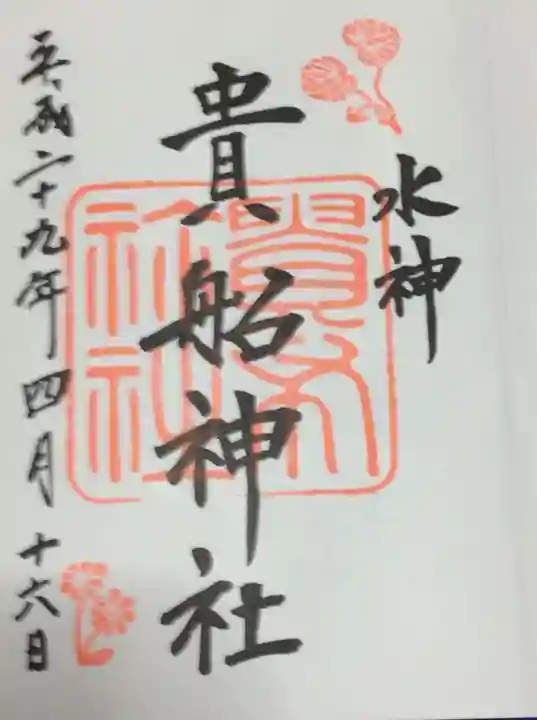 水神
貴船神社
平成二十九年四月十六日